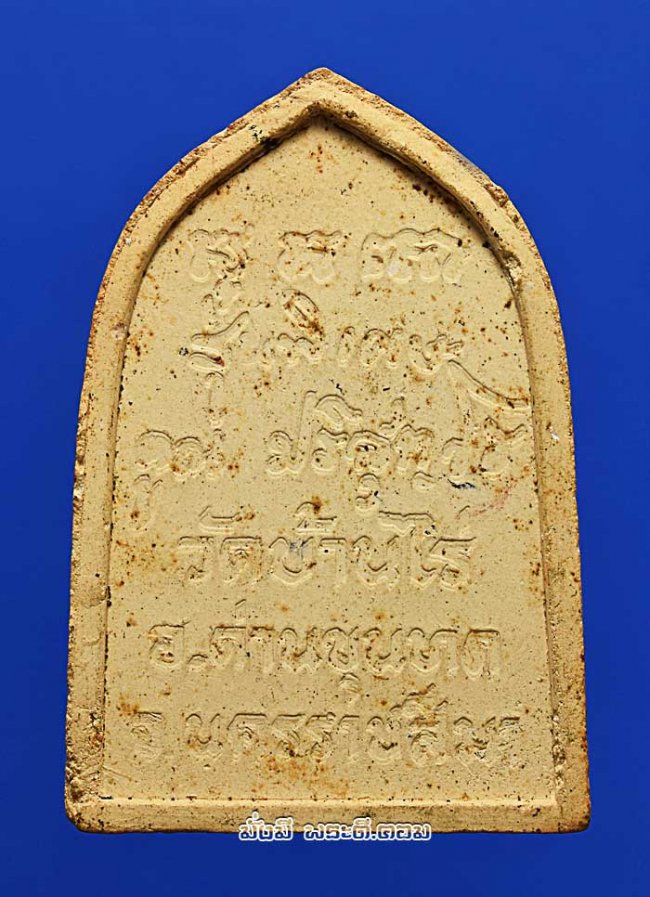 รุ่นพิเศษ
คูณ ปริสุทฺโธ
วัดบ้านไร่
อ.ด่านขุนทด
จ.นครราชสีมา
มั่งมี พระดี.คอม